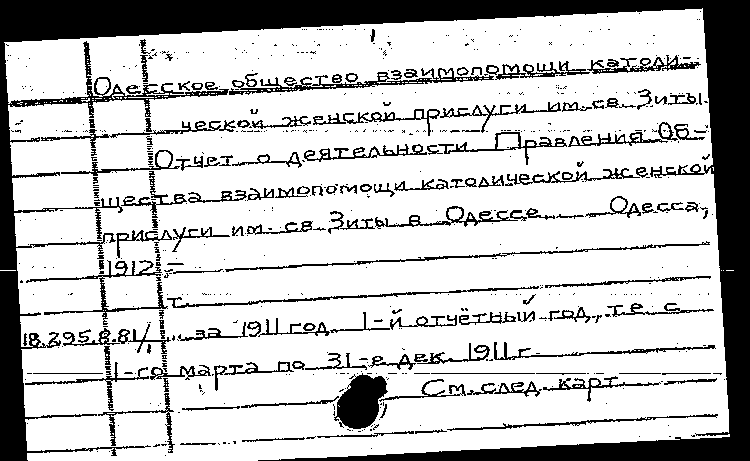 Одесское общество взаимопомощи католи-
ческой женской прислуги им. св. Зиты.
Отчет о деятельности Правления Об-
щества взаимопомощи католической женской
прислуги им. св. Зиты в Одессе. Одесса,
1912 –
т.
18.295.8.81/1. ... за 1911 год. 1-й отчётный год, т.е. с
1-го марта по 31-е дек. 1911 г.
См. след. карт.